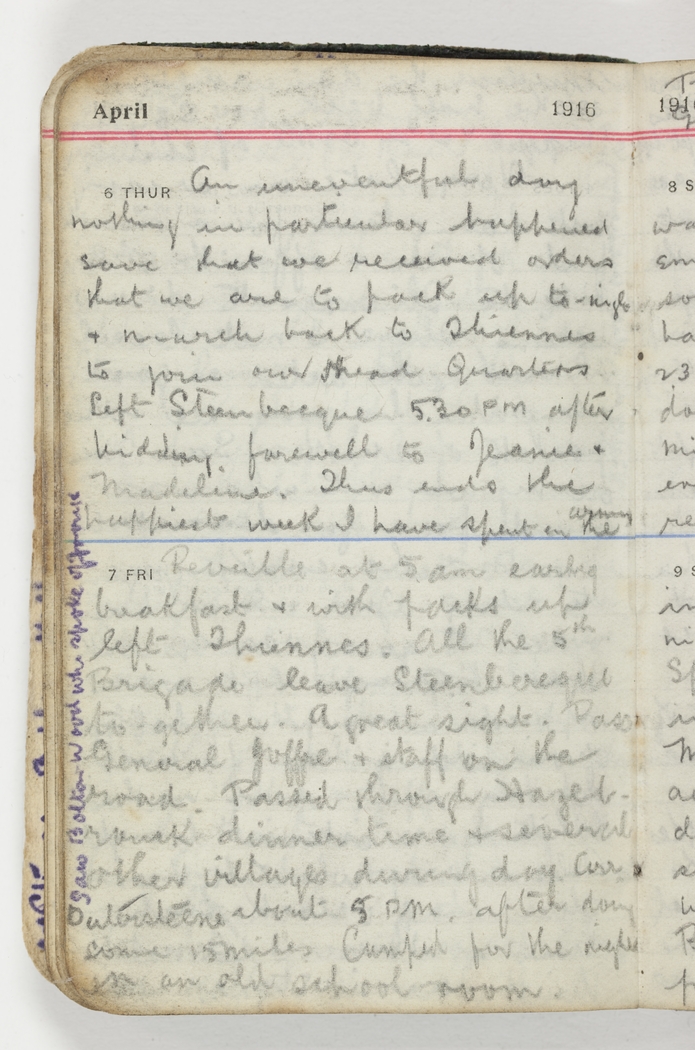 April 1916
6 THUR An uneventful day
nothing in particular happened
save that we received orders
that we are to pack up to-nigh
+ march back to Thiennes
to join our Head Quarters
Left Steenbecque 5.30 PM after
bidding farewell to Jeanie +
Madeline. Thus ends the
happiest week I have spent in the army
7 FRI Reveille at 5 am early
breakfast + with packs up
left Thiennes. All the 5th
Brigade leave
to-gether. A great sight. Pass
General Joffre + staff on the
road. Passed through Hazeb-
rouck dinner time + several
other villages during day
Outersteene about 5 PM, after doing
some 15 miles Camped for the night
in an old school room.
Saw Bolton Wood who spoke of Frank
191
8 S
wa
em
so
ha
23
do
mi
en
re
9 S
in
ni
Sp
M
a
d